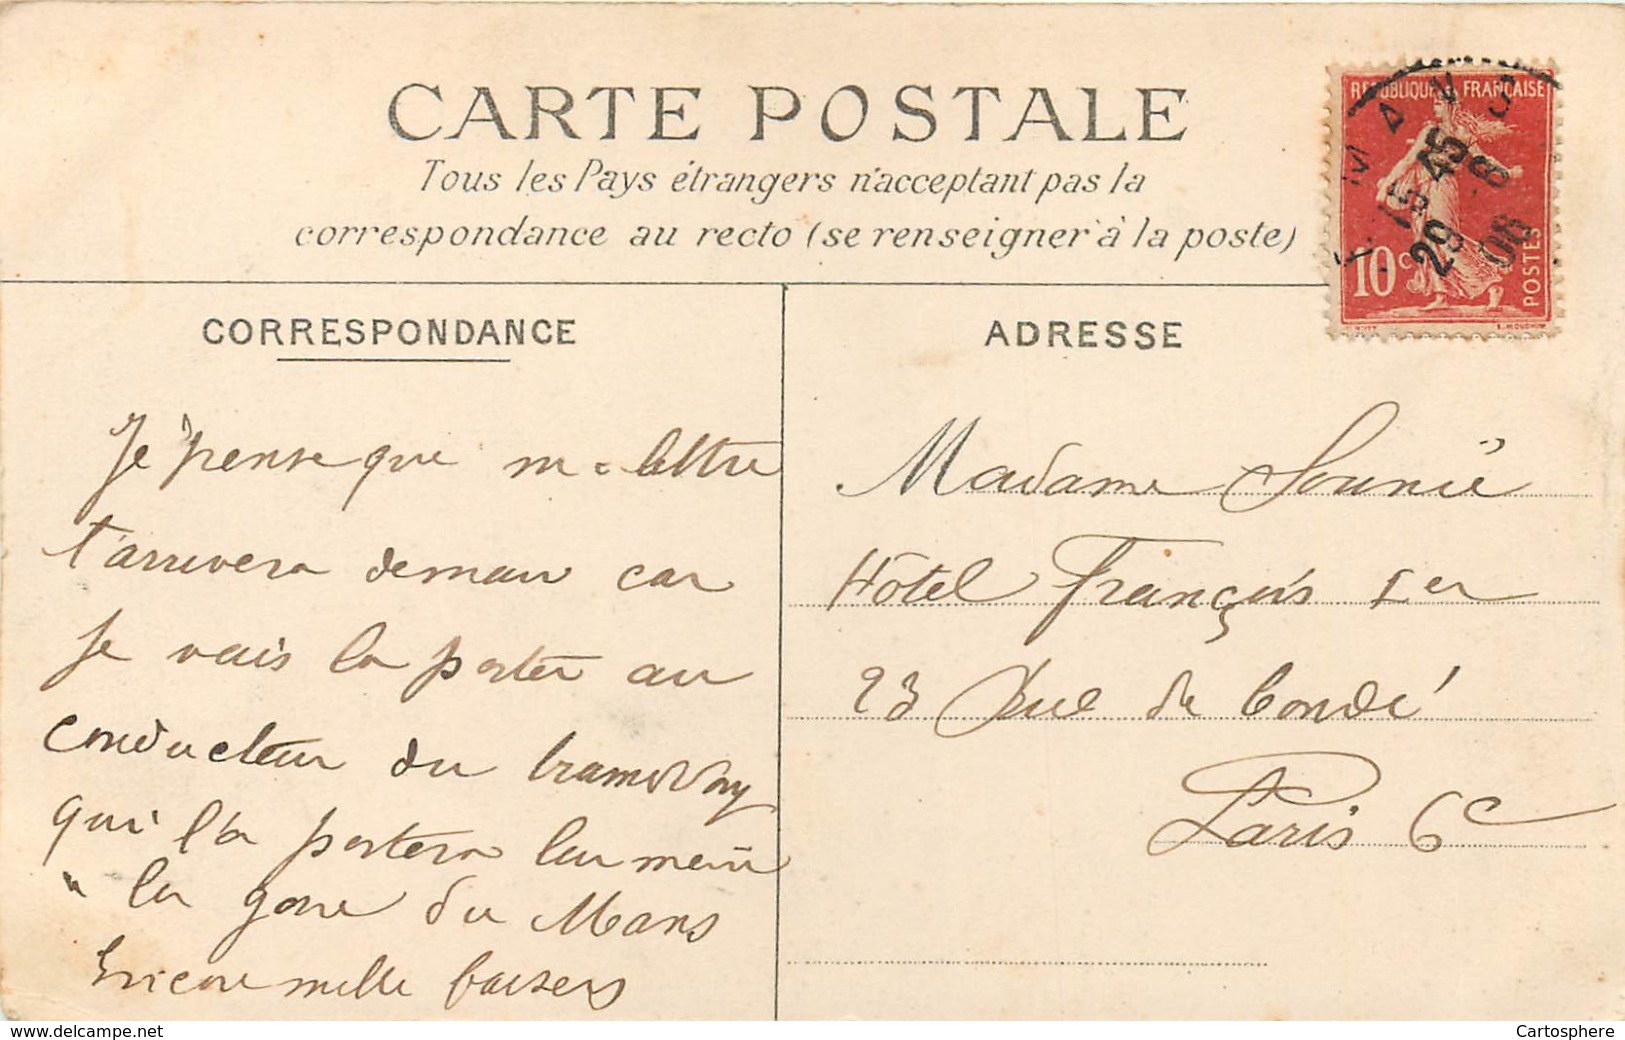 CARTE POSTALE
Tous les Pays étrangers n'acceptant pas la
correspondance au recto (se renseigner à la poste)
RÉPUBLIQUE FRANÇAISE
10c
POSTES
E. MOUCHON
15 45
29 -8
06
CORRESPONDANCE
Je pense que ma lettre
t'arrivera demain car
je vais la porter au
conducteur du tramway
qui l'a portera lui meme
a la gare du Mans
Encore mille baisers
ADRESSE
Madame Sounié
Hôtel François 1er
23 Rue de Condé
Paris 6e
www.delcampe.net
Cartosphere